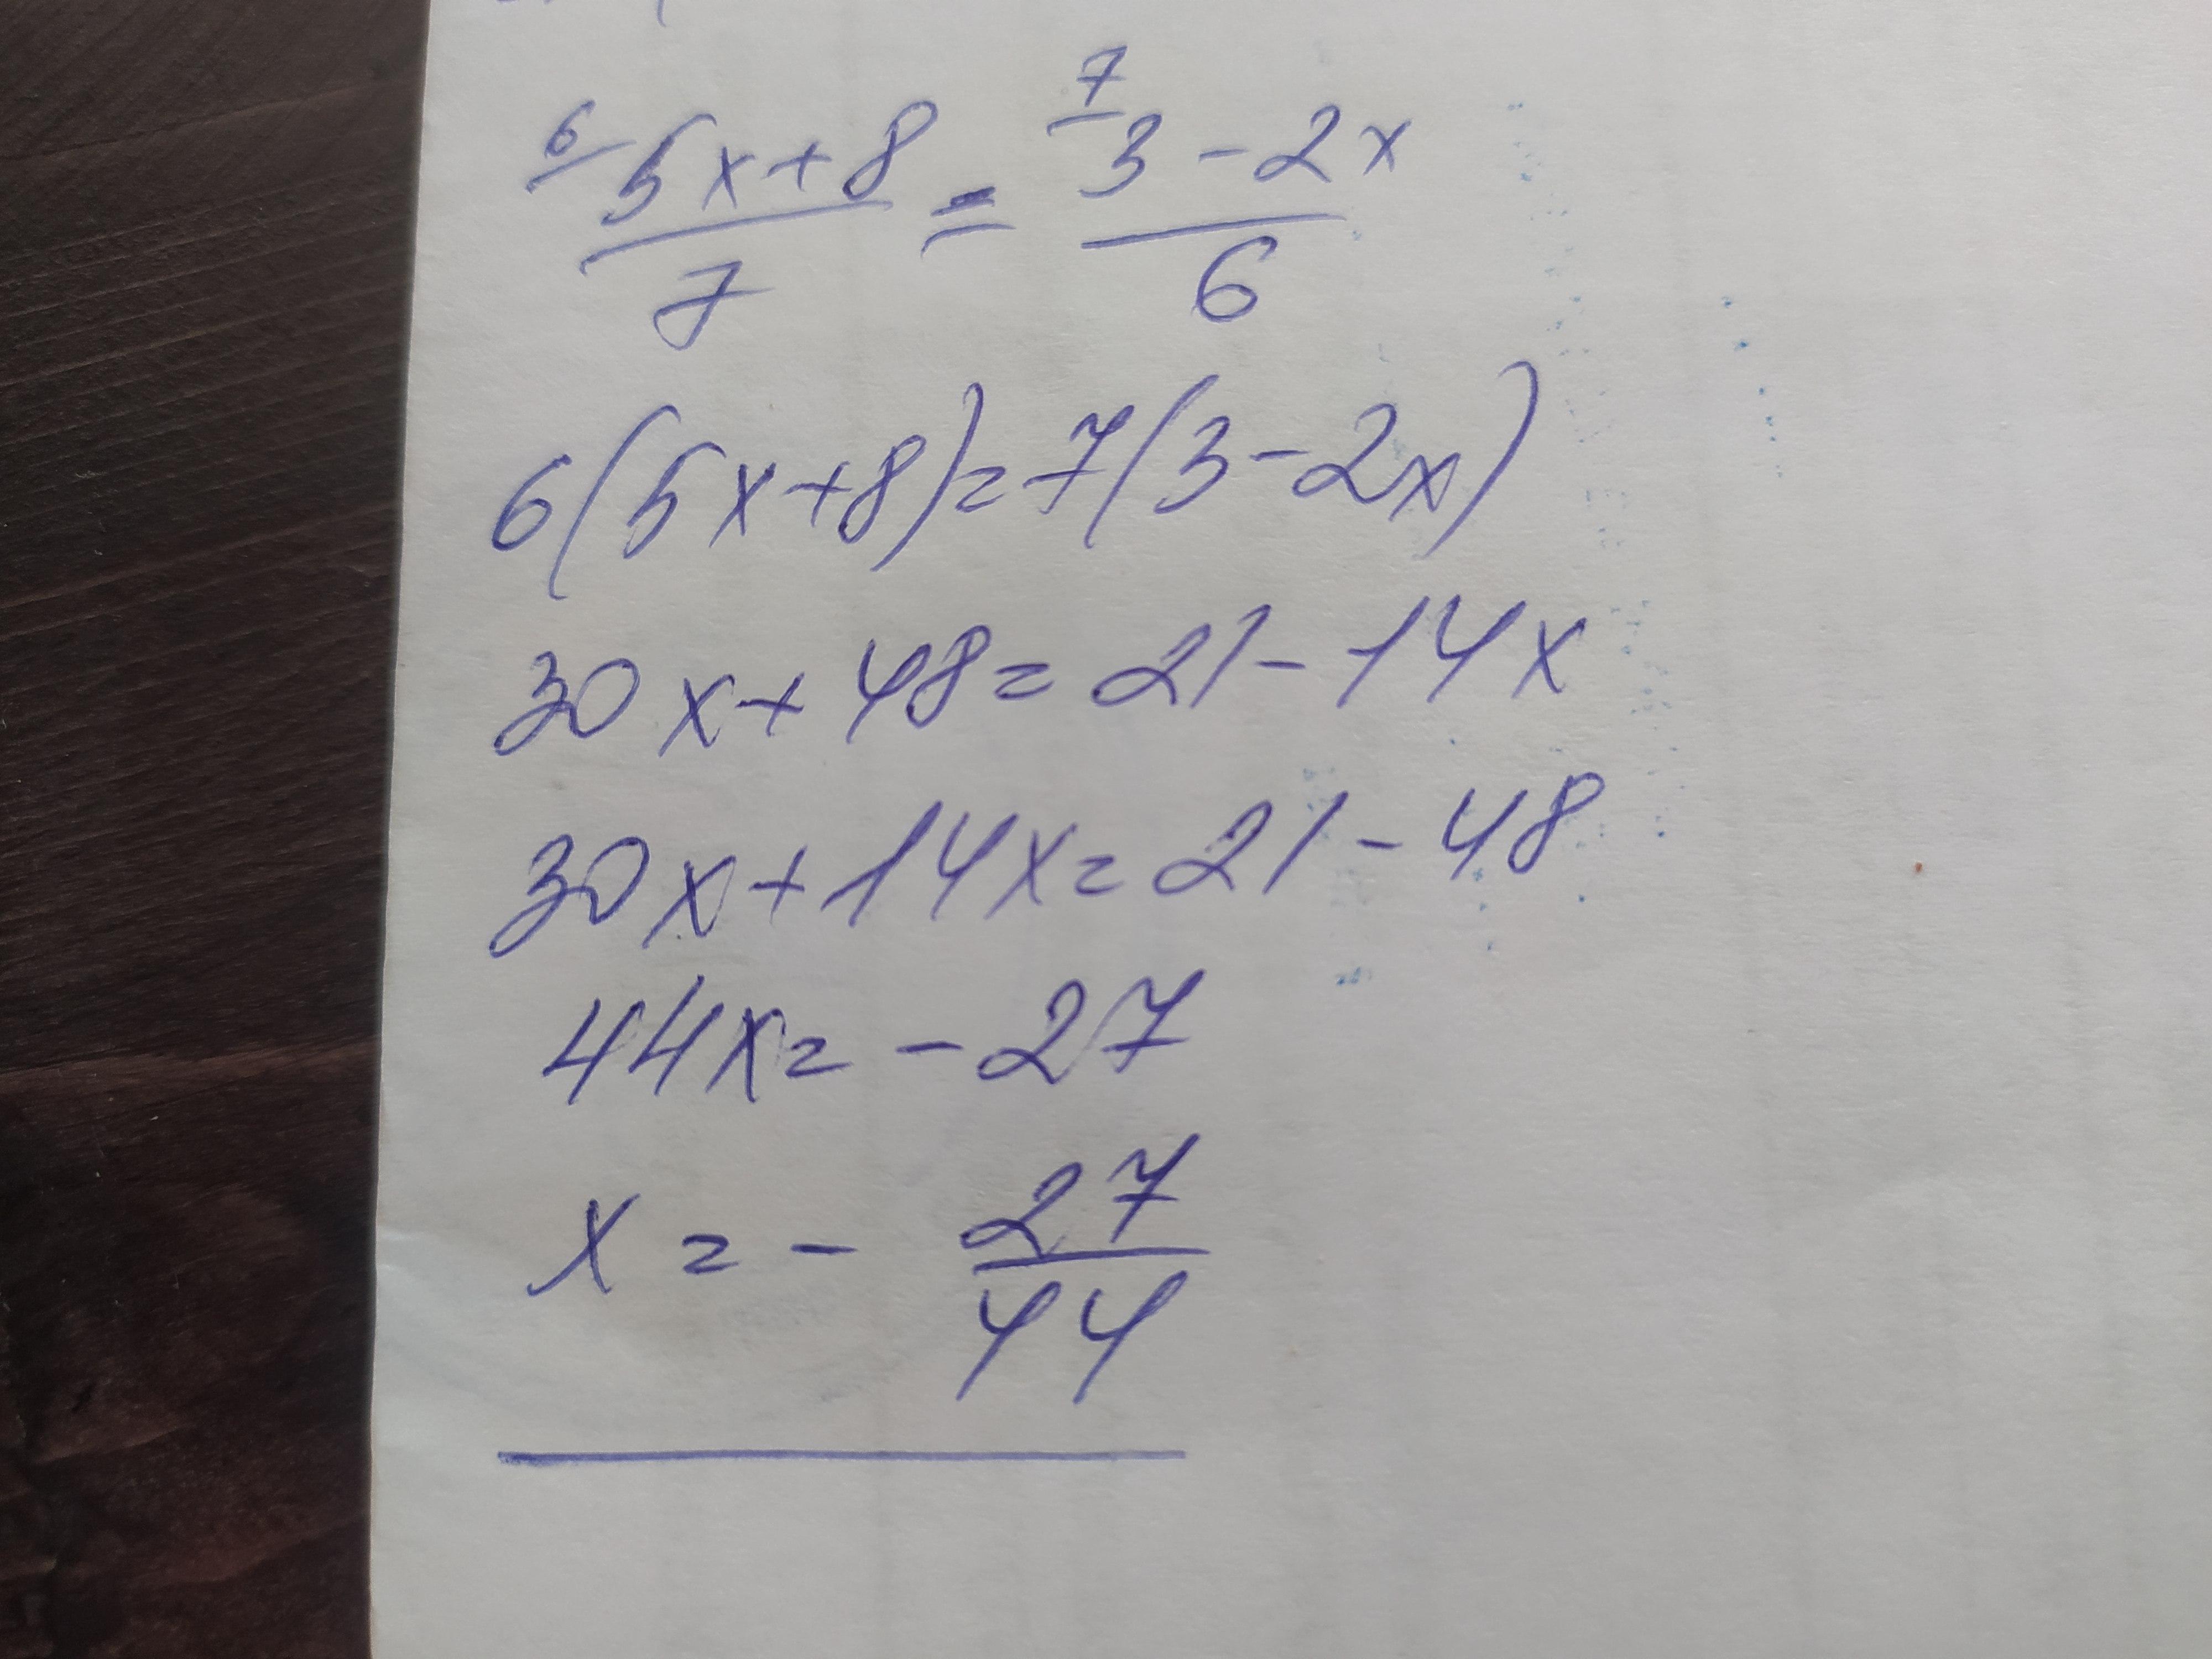 6 5x+8 / 7 = 7 3-2x / 6
6(5x+8)=7(3-2x)
30x+48=21-14x
30x+14x=21-48
44x=-27
x=-27/44